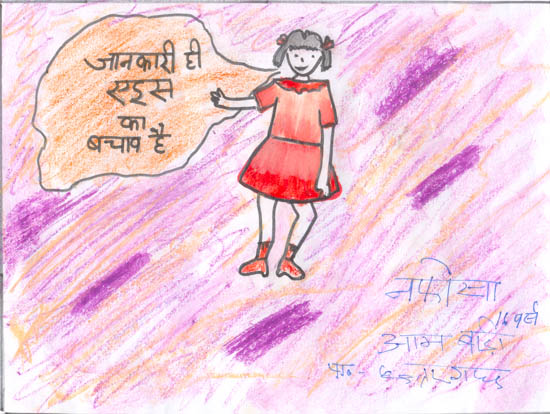 जानकारी ही
एड्स
का
बचाव है
नफीसा
16 वर्ष
आम बाड़ी